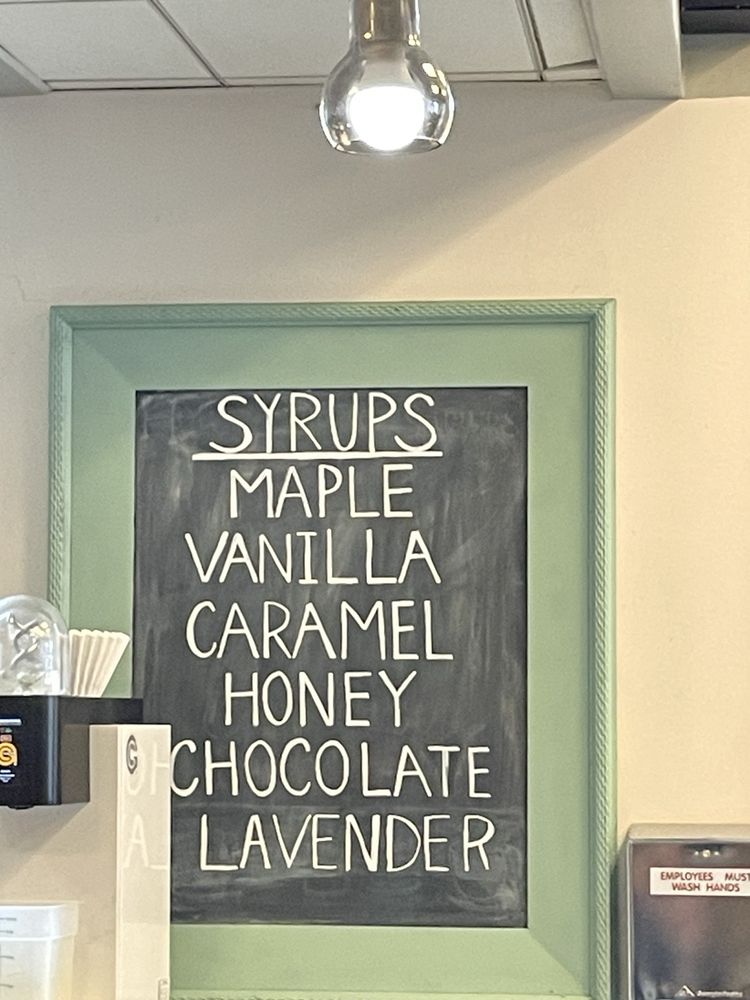 SYRUPS
MAPLE
VANILLA
CARAMEL
HONEY
CHOCOLATE
LAVENDER
EMPLOYEES MUST
WASH HANDS